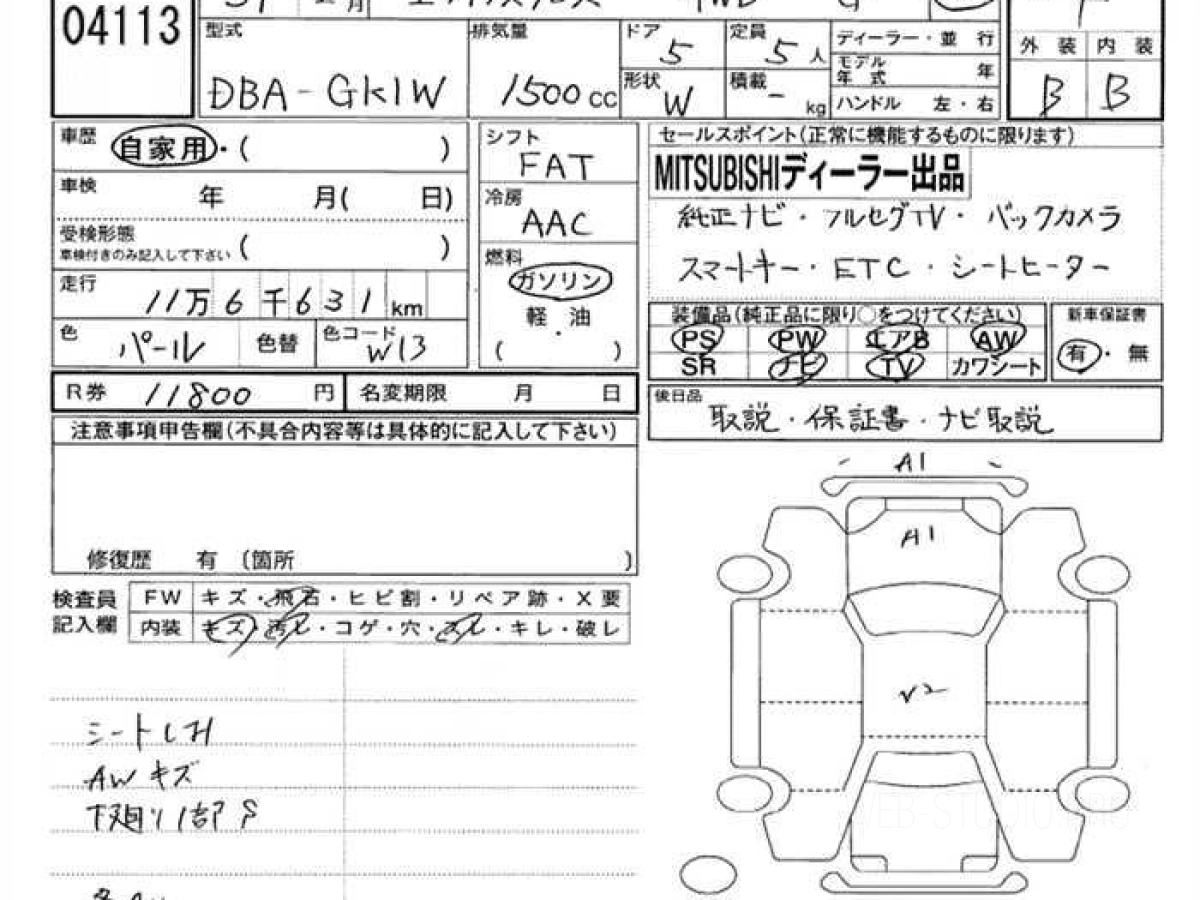 04113
31 月 エクリプスクロス 4WD G
型式 排気量 ドア 5 定員 5 人 ディーラー・並 行 外 装 内 装
モデル年式 年
DBA-GK1W 1500 cc 形状 W 積載 - kg ハンドル 左・右 B B
車歴 自家用・( )
シフト FAT
セールスポイント(正常に機能するものに限ります)
MITSUBISHIディーラー出品
車検 年 月( 日)
冷房 AAC
純正ナビ・フルセグTV・バックカメラ
受検形態 車検付きのみ記入して下さい ( )
燃料 ガソリン・軽油 ( )
スマートキー・ETC・シートヒーター
走行 11万6千631km
装備品(純正品に限り○をつけてください) 新車保証書
PS PW エアB AW 有・無
色 パール 色替 色コード W13
SR ナビ TV カワシート
R券 11800 円 名変期限 月 日
後日品 取説・保証書・ナビ取説
注意事項申告欄(不具合内容等は具体的に記入して下さい)
A1
A1
修復歴 有 〔箇所 〕
検査員記入欄 FW キズ・飛石・ヒビ割・リペア跡・X要
内装 キズ・汚レ・コゲ・穴・スレ・キレ・破レ
シート
AWキズ
下廻り1部S
WEB-STUDIO.PRO